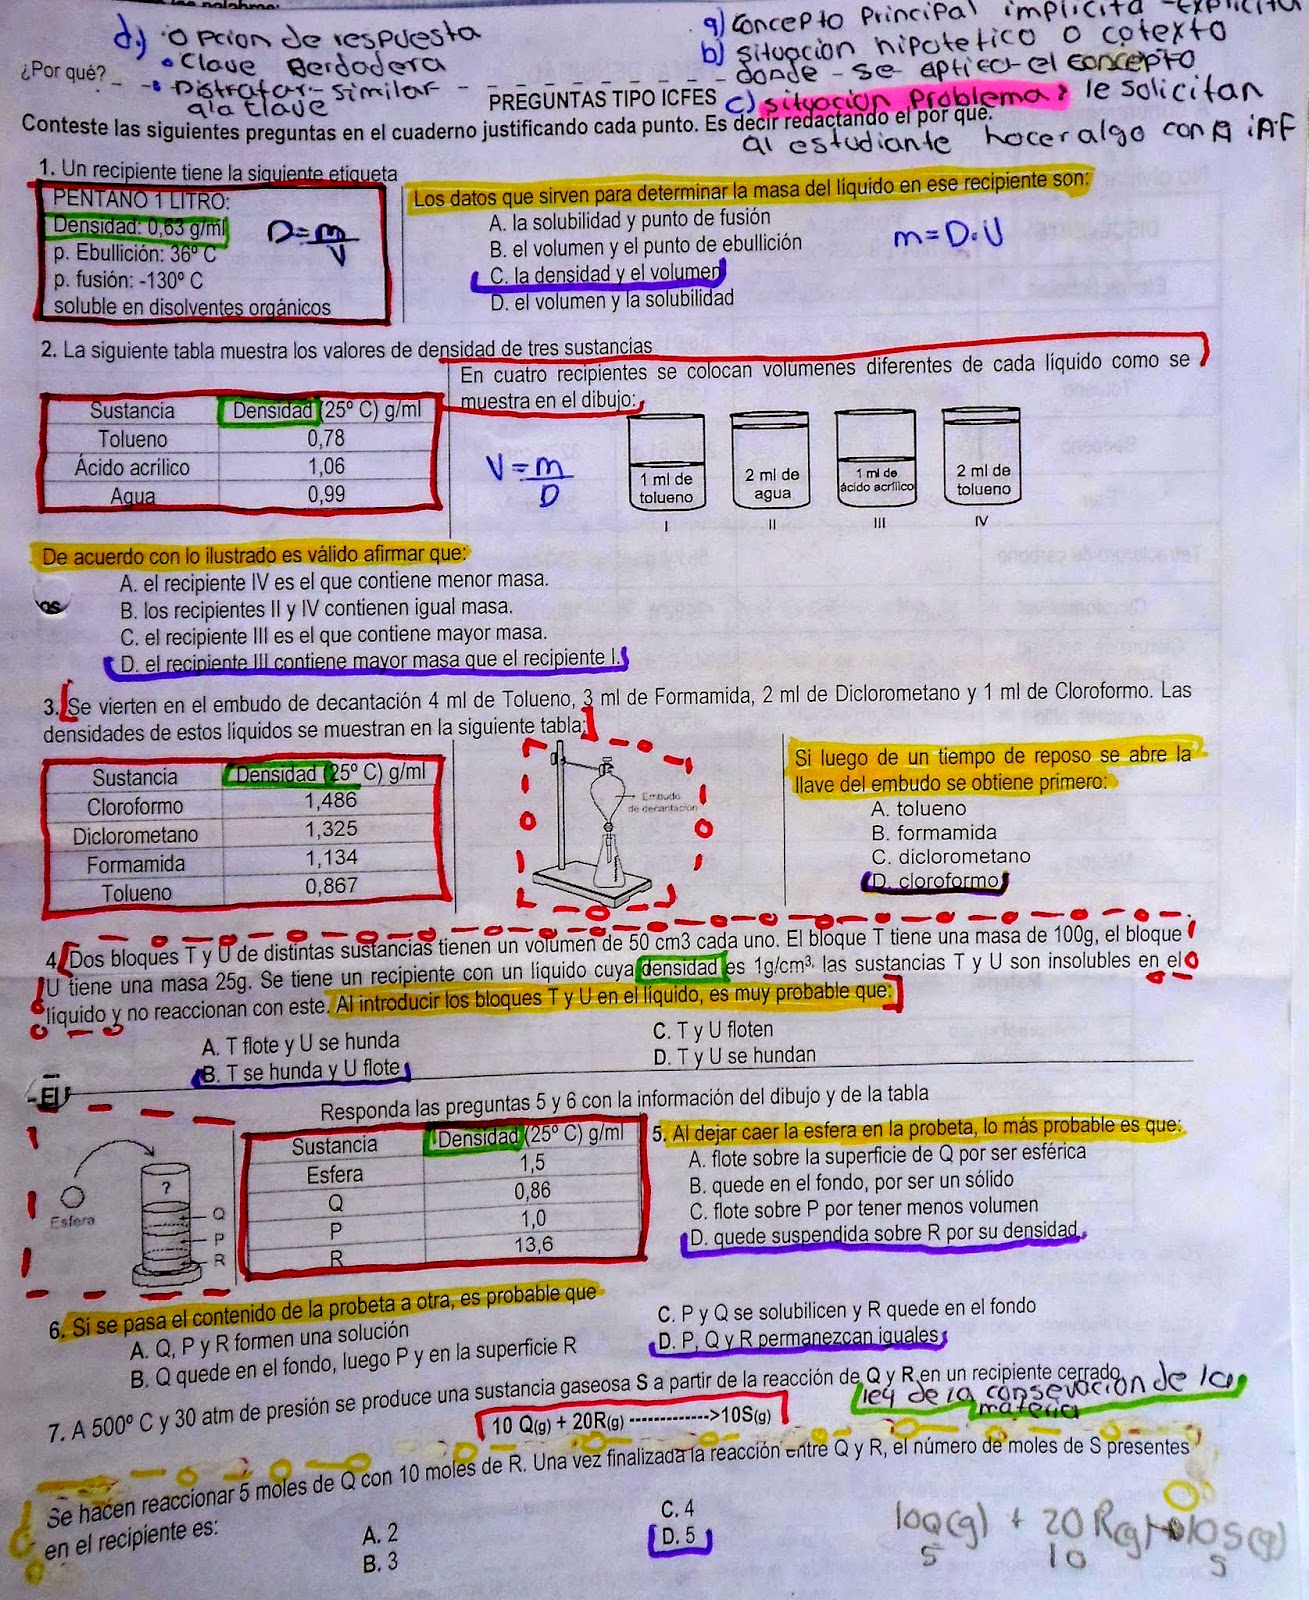 d.) · opcion de respuesta
• Clave Berdadera
• Distractor - similar
a la clave
a) Concepto Principal implicita - Explicita
b) situacion hipotetico o cotexto
donde - se aplica el concepto
c) situacion problema: le solicitan
al estudiante hacer algo con A iAF
¿Por qué?
PREGUNTAS TIPO ICFES
Conteste las siguientes preguntas en el cuaderno justificando cada punto. Es decir redactando el por qué.
1. Un recipiente tiene la siguiente etiqueta
PENTANO 1 LITRO:
Densidad: 0,63 g/ml
p. Ebullición: 36º C
p. fusión: -130º C
soluble en disolventes orgánicos
D = m
V
Los datos que sirven para determinar la masa del líquido en ese recipiente son:
A. la solubilidad y punto de fusión
B. el volumen y el punto de ebullición
C. la densidad y el volumen
D. el volumen y la solubilidad
m = D. V
2. La siguiente tabla muestra los valores de densidad de tres sustancias
Sustancia Densidad (25º C) g/ml
Tolueno 0,78
Ácido acrílico 1,06
Agua 0,99
En cuatro recipientes se colocan volúmenes diferentes de cada líquido como se
muestra en el dibujo:
V = m
D
1 ml de
tolueno
I
2 ml de
agua
II
1 ml de
ácido acrílico
III
2 ml de
tolueno
IV
De acuerdo con lo ilustrado es válido afirmar que:
A. el recipiente IV es el que contiene menor masa.
B. los recipientes II y IV contienen igual masa.
C. el recipiente III es el que contiene mayor masa.
D. el recipiente III contiene mayor masa que el recipiente I.
3. Se vierten en el embudo de decantación 4 ml de Tolueno, 3 ml de Formamida, 2 ml de Diclorometano y 1 ml de Cloroformo. Las
densidades de estos líquidos se muestran en la siguiente tabla:
Sustancia Densidad (25º C) g/ml
Cloroformo 1,486
Diclorometano 1,325
Formamida 1,134
Tolueno 0,867
Embudo
de decantación
Si luego de un tiempo de reposo se abre la
llave del embudo se obtiene primero:
A. tolueno
B. formamida
C. diclorometano
D. cloroformo
4. Dos bloques T y U de distintas sustancias tienen un volumen de 50 cm3 cada uno. El bloque T tiene una masa de 100g, el bloque
U tiene una masa 25g. Se tiene un recipiente con un líquido cuya densidad es 1g/cm³. las sustancias T y U son insolubles en el
líquido y no reaccionan con este. Al introducir los bloques T y U en el líquido, es muy probable que:
A. T flote y U se hunda
B. T se hunda y U flote
C. T y U floten
D. T y U se hundan
Responda las preguntas 5 y 6 con la información del dibujo y de la tabla
Esfera
?
Q
P
R
Sustancia Densidad (25º C) g/ml
Esfera 1,5
Q 0,86
P 1,0
R 13,6
5. Al dejar caer la esfera en la probeta, lo más probable es que:
A. flote sobre la superficie de Q por ser esférica
B. quede en el fondo, por ser un sólido
C. flote sobre P por tener menos volumen
D. quede suspendida sobre R por su densidad
6. Si se pasa el contenido de la probeta a otra, es probable que
A. Q, P y R formen una solución
B. Q quede en el fondo, luego P y en la superficie R
C. P y Q se solubilicen y R quede en el fondo
D. P, Q y R permanezcan iguales
7. A 500º C y 30 atm de presión se produce una sustancia gaseosa S a partir de la reacción de Q y R en un recipiente cerrado
ley de la consevacion de la
materia
10 Q(g) + 20R(g) ------------->10S(g)
Se hacen reaccionar 5 moles de Q con 10 moles de R. Una vez finalizada la reacción entre Q y R, el número de moles de S presentes
en el recipiente es:
A. 2
B. 3
C. 4
D. 5
10Q(g) + 20R(g) → 10S(g)
5 10 5